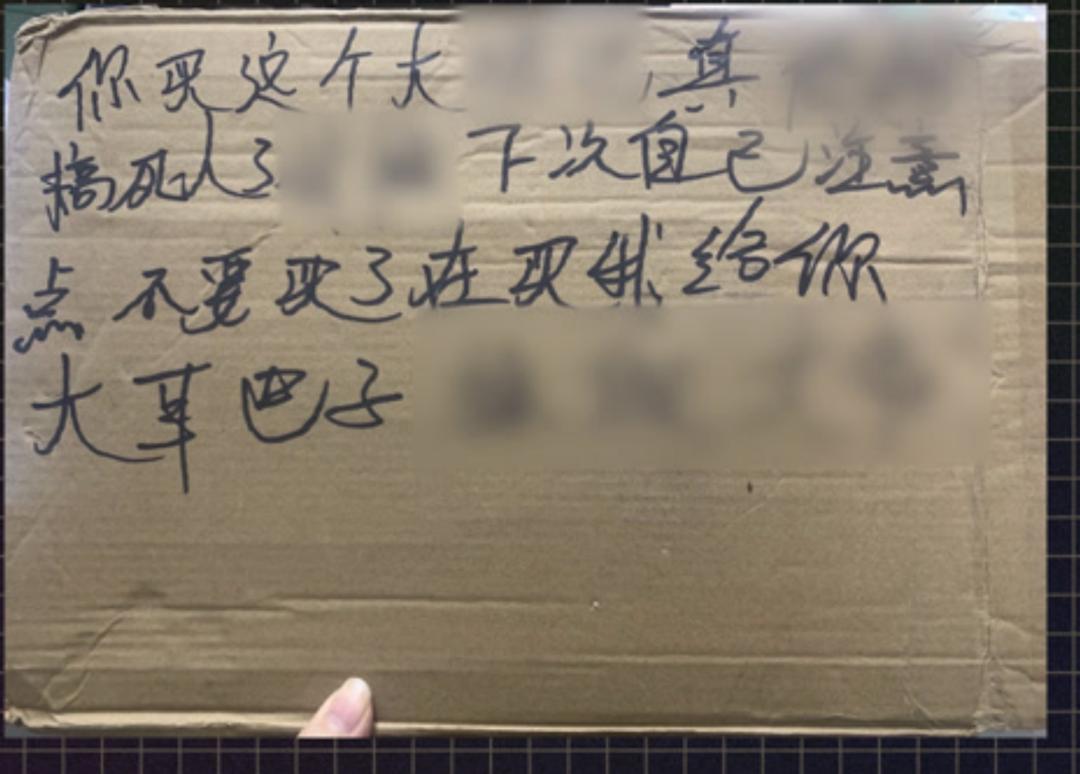 你买这个大 真
搞死人了 下次自己注意
点不要买了在买我给你
大耳巴子